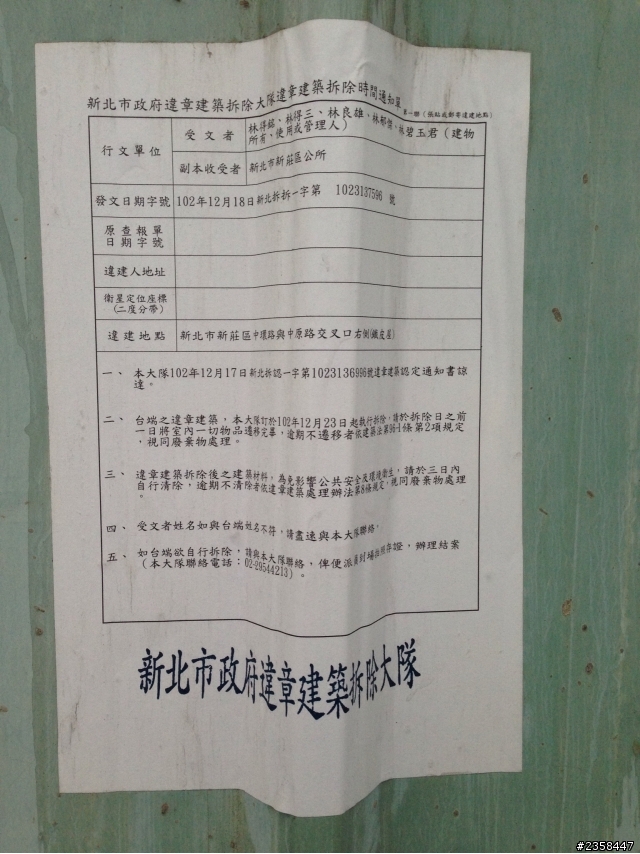 新北市政府違章建築拆除大隊違章建築拆除時間通知單 第一聯(張貼或郵寄違建地點)
行文單位
受文者
林得銘、林得三、林良雄、林郁傑、林碧玉君(建物
所有、使用或管理人)
副本收受者
新北市新莊區公所
發文日期字號
102年12月18日新北拆拆一字第 1023137596 號
原查報單
日期字號
違建人地址
衛星定位座標
(二度分帶)
違建地點
新北市新莊區中環路與中原路交叉口右側(鐵皮屋)
一、 本大隊102年12月17日新北拆認一字第1023136996號違章建築認定通知書諒
達。
二、 台端之違章建築,本大隊訂於102年12月23日起執行拆除,請於拆除日之前
一日將室內一切物品遷移完畢,逾期不遷移者依建築法第96-1條第2項規定
,視同廢棄物處理。
三、 違章建築拆除後之建築材料,為免影響公共安全及環境衛生,請於三日內
自行清除,逾期不清除者依違章建築處理辦法第8條規定,視同廢棄物處理
。
四、 受文者姓名如與台端姓名不符,請盡速與本大隊聯絡。
五、 如台端欲自行拆除,請與本大隊聯絡,俾便派員到場拍照存證,辦理結案
(本大隊聯絡電話:02-29544213)。
新北市政府違章建築拆除大隊
#2358447